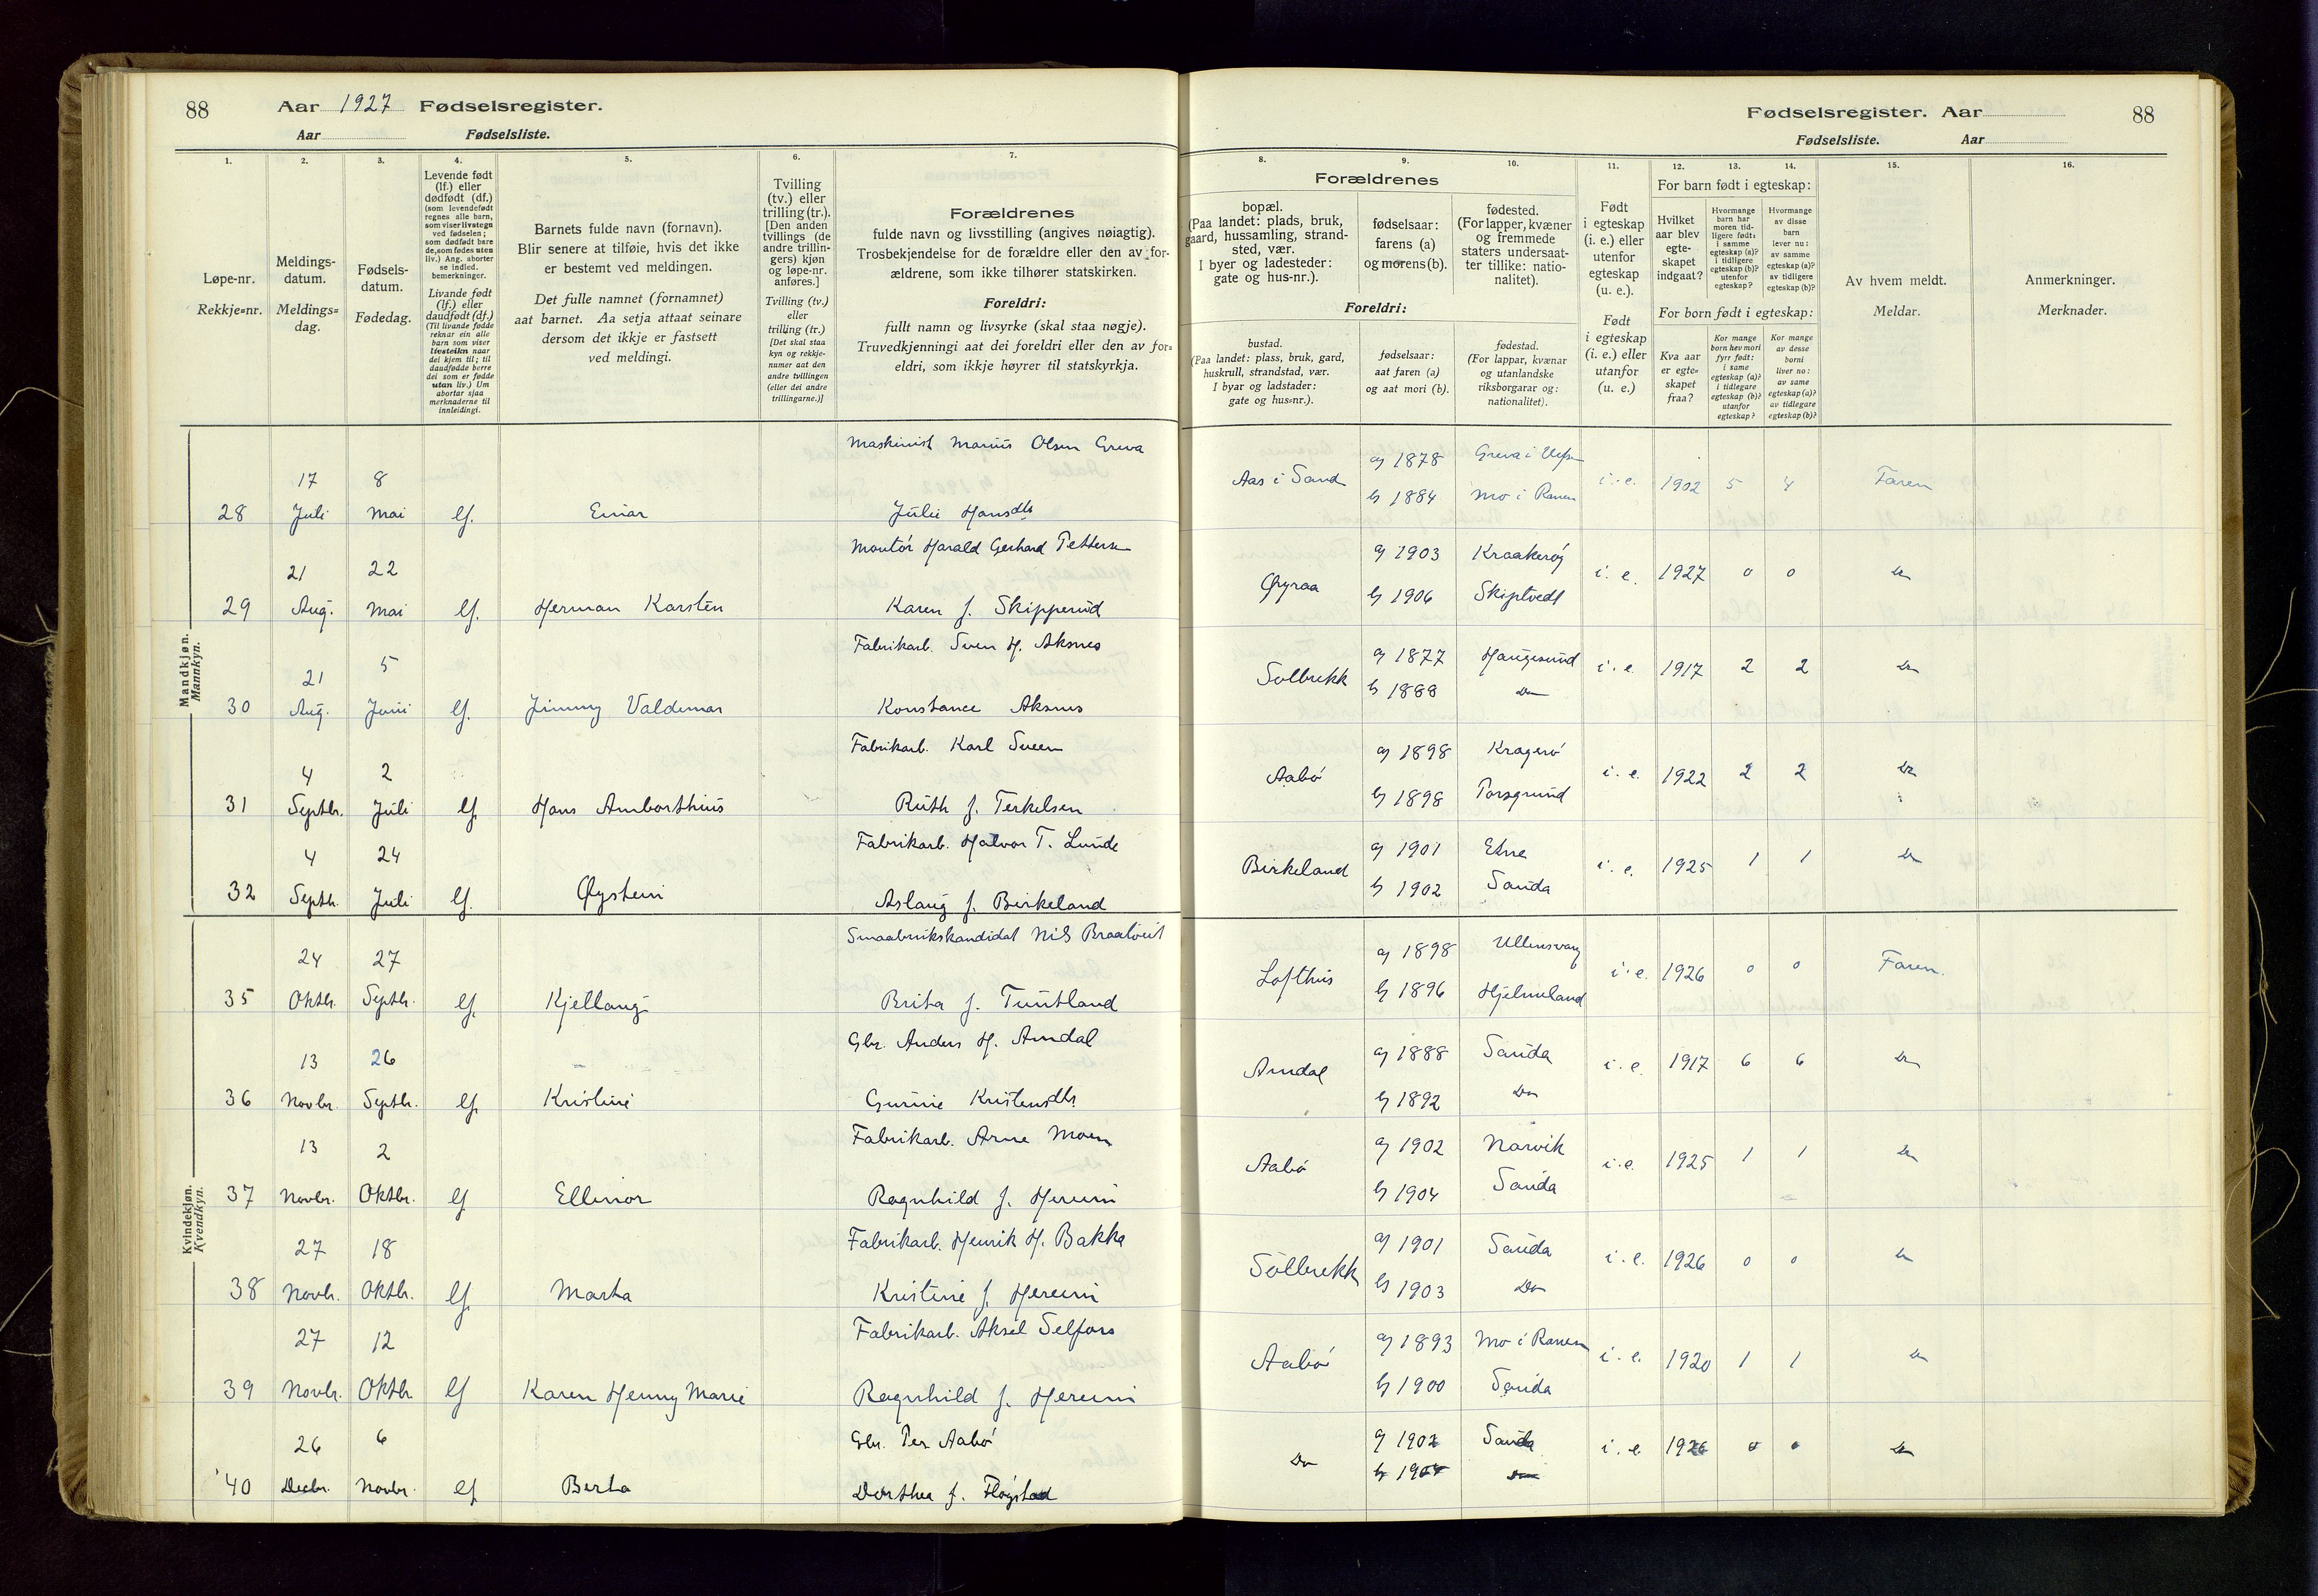 88 Aar 1927 Fødselsregister.
Aar Fødselsliste.
Fødselsregister. Aar 88
Fødselsliste. Aar
1. 2. 3. 4. 5. 6. 7. 8. 9. 10. 11. 12. 13. 14. 15. 16.
Løpe-nr.
Rekkje=nr.
Meldings-
datum.
Meldings=
dag.
Fødsels-
datum.
Fødedag.
Levende født
(lf.) eller
dødfødt (df.)
(som levendefødt
regnes alle barn,
som viser livstegn
ved fødselen;
som dødfødt bare
de, som fødes uten
liv.) Ang. aborter
se indled.
bemerkninger.
Livande født
(lf.) eller
daudfødt (df.)
(Til livande fødde
reknar ein alle
barn som viser
livsteikn naar
dei kjem til; til
daudfødde berre
dei som er fødde
utan liv.) Um
abortar sjaa
merknaderne til
innleidingi.
Barnets fulde navn (fornavn).
Blir senere at tilføie, hvis det ikke
er bestemt ved meldingen.
Det fulle namnet (fornamnet)
aat barnet. Aa setja attaat seinare
dersom det ikkje er fastsett
ved meldingi.
Tvilling
(tv.) eller
trilling (tr.).
[Den anden
tvillings (de
andre trillin-
gers) kjøn
og løpe-nr.
anføres.]
Tvilling (tv.)
eller
trilling (tr.)
[Det skal staa
kyn og rekkje-
numer aat den
andre tvillingen
(eller dei andre
trillingarne.)]
Forældrenes
fulde navn og livsstilling (angives nøiagtig).
Trosbekjendelse for de forældre eller den av for-
ældrene, som ikke tilhører statskirken.
Foreldri:
fullt namn og livsyrke (skal staa nøgje).
Truvedkjenningi aat dei foreldri eller den av for=
eldri, som ikkje høyrer til statskyrkja.
Forældrenes
bopæl.
(Paa landet: plads, bruk,
gaard, hussamling, strand-
sted, vær.
I byer og ladesteder:
gate og hus-nr.).
fødselsaar:
farens (a)
og morens (b).
fødested.
(For lapper, kvæner
og fremmede
staters undersaat-
ter tillike: natio-
nalitet).
Foreldri:
bustad.
(Paa landet: plass, bruk, gard,
huskrull, strandstad, vær.
I byar og ladstader:
gate og hus=nr.).
fødselsaar:
aat faren (a)
og aat mori (b).
fødestad.
(For lappar, kvænar
og utanlandske
riksborgarar og:
nationalitet).
Født
i egteskap
(i. e.) eller
utenfor
egteskap
(u. e.).
Født
i egteskap
(i. e.) eller
utanfor
(u. e.)
For barn født i egteskap:
Hvilket
aar blev
egte-
skapet
indgaat?
Hvormange
barn har
moren tid-
ligere født:
i samme
egteskap (a)?
i tidligere
egteskap (b)?
utenfor
egteskap?
Hvormange
av disse
barn
lever nu:
av samme
egteskap (a)?
av tidligere
egteskap (b)?
For born født i egteskap:
Kva aar
er egte=
skapet
fraa?
Kor mange
born hev mori
fyrr født:
i same
egteskap (a)?
i tidlegare
egteskap (b)?
utanfor
egteskap?
Kor mange
av desse
borni
liver no:
av same
egteskap (a)?
av tidlegare
egteskap (b)?
Av hvem meldt.
Meldar.
Anmerkninger.
Merknader.
Mandkjøn.
Mannkyn.
Maskinist Marius Olsen Greva
17 8 Aas i Sand a) 1878 Greva i i. e. 1902 5 4 Faren
28 Juli Mai lf. Einar Julie Hansdtr b) 1884 Mo i Ranen
Montør Harald Gerhard Pettersen
21 22 Øyraa a) 1903 Kraakerøy i. e. 1927 0 0 Do
29 Aug. Mai lf. Herman Karsten Karen f. Skipperud b) 1906 Skiptvedt
Fabrikarb. Sven H. Aksnes
21 5 Solbrekk a) 1877 Haugesund i. e. 1917 2 2 Do
30 Aug. Juni lf. Jimmy Valdemar Konstance Aksnes b) 1888 Do
Fabrikarb. Karl Sveen
4 2 Aabø a) 1898 Kragerø i. e. 1922 2 2 Do
31 Septbr. Juli lf. Hans Amborthius Ruth f. Terkelsen b) 1898 Porsgrund
Fabrikarb. Halvor T. Lunde
4 24 Birkeland a) 1901 Etne i. e. 1925 1 1 Do
32 Septbr. Juli lf. Øystein Aslaug f. Birkeland b) 1902 Sauda
Kvindekjøn.
Kvendkyn.
Smaabrukskandidat Nils Braatveit
24 27 Lofthus a) 1898 Ullensvang i. e. 1926 0 0 Faren.
35 Oktbr. Septbr. lf. Kjellaug Brita f. Tuntland b) 1896 Hjelmeland
Gbr. Anders H. Amdal
13 26 Amdal a) 1888 Sauda i. e. 1917 6 6 Do
36 Novbr. Septbr. lf. Kristine Gurine Kristensdtr b) 1892 Do
Fabrikarb. Arne Moen
13 2 Aabø a) 1902 Narvik i. e. 1925 1 1 Do
37 Novbr. Oktbr. lf Ellinor Ragnhild f. Hereim b) 1904 Sauda
Fabrikarb. Henrik H. Bakka
27 18 Solbrekk a) 1901 Sauda i. e. 1926 0 0 Do
38 Novbr. Oktbr. lf. Marta Kristine f. Hereim b) 1903 Do
Fabrikarb. Aksel Selfors
27 12 Aabø a) 1893 Mo i Ranen i. e. 1920 1 1 Do
39 Novbr. Oktbr. lf Karen Henny Marie Ragnhild f. Hereim b) 1900 Sauda
Gbr. Per Aabø
26 6 Do a) 1902 Sauda i. e. 1926 0 0 Do
40 Decbr. Novbr. lf Berta Dorthea f. Fløgstad b) 1904 Do